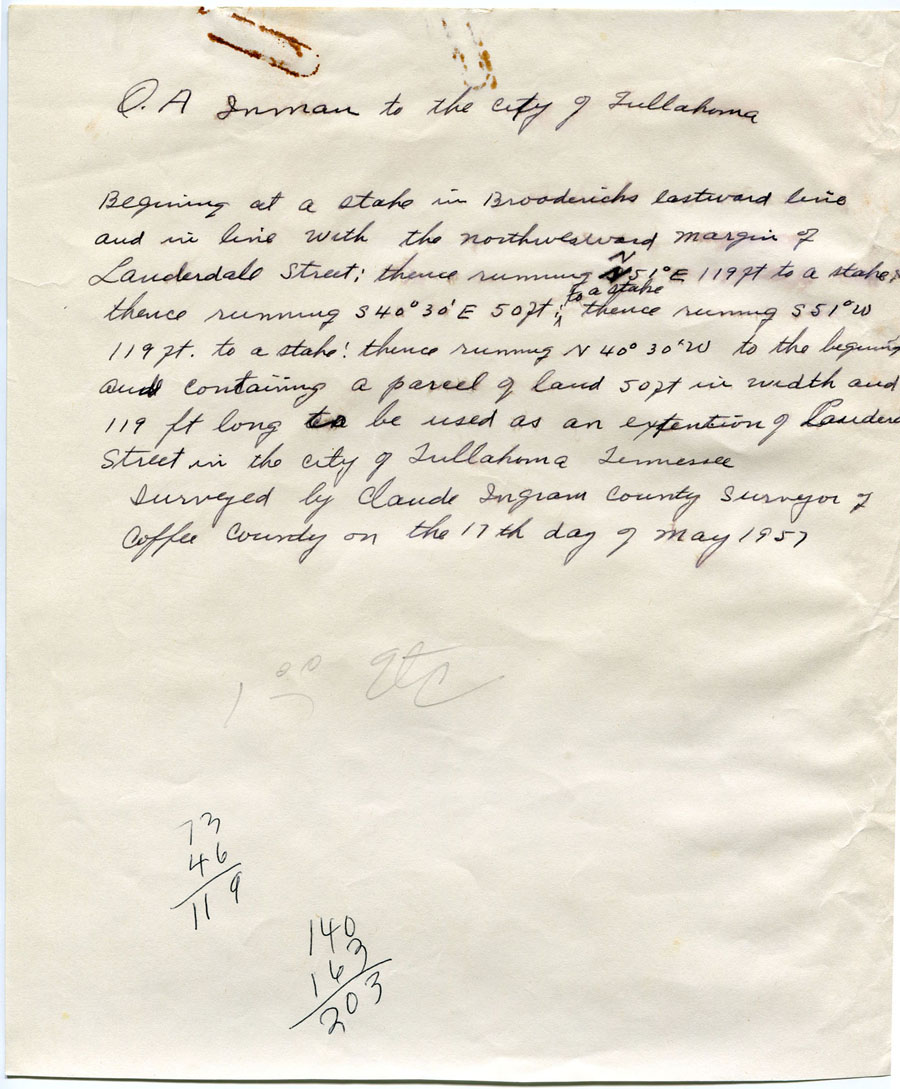 O. A Inman to the city of Tullahoma
Begining at a stake in Brooderichs Eastward line
and in line with the northwestward margin of
Lauderdale Street; thence running N 51° E 119 ft to a stake;
to a stake
thence running S 40° 30' E 50 ft; thence runing S 51° W
119 ft. to a stake; thence running N 40° 30' W to the begining
and containing a parcel of land 50 ft in width and
119 ft long to be used as an extention of Lauder
Street in the city of Tullahoma Tennessee
Surveyed by Claude Ingram County Surveyor of
Coffee County on the 17th day of May 1957
1 00 etc
73
46
119
140
163
203